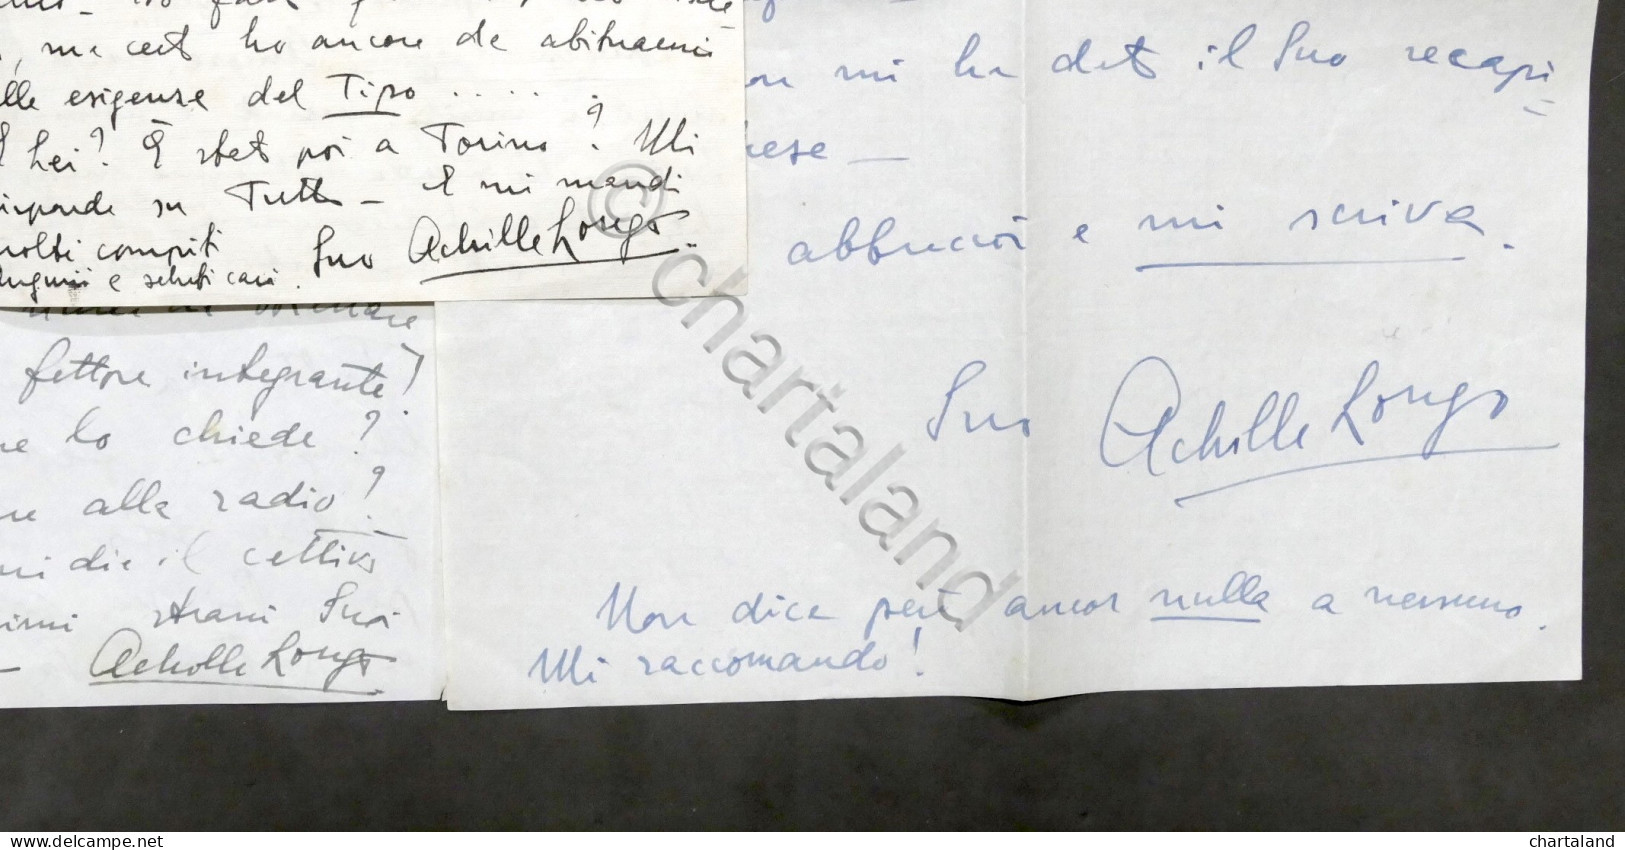 , ma cert ho ancora da abituarmi
alle esigenze del Tipo .....
E Lei? È stat poi a Torino? Mi
risponda su Tutto — E mi mandi
molti compiti
auguri e saluti cari. Suo Achille Longo
fattore integrante!
lo chiede?
alla radio?
mi die il cattivo
strani Suoi
Achille Longo
mi ha dato il Suo recapi=
abbracci e mi scriva.
Suo Achille Longo
Non dica però ancor nulla a nessuno.
Mi raccomando!
© chartaland
www.delcampe.net
chartaland